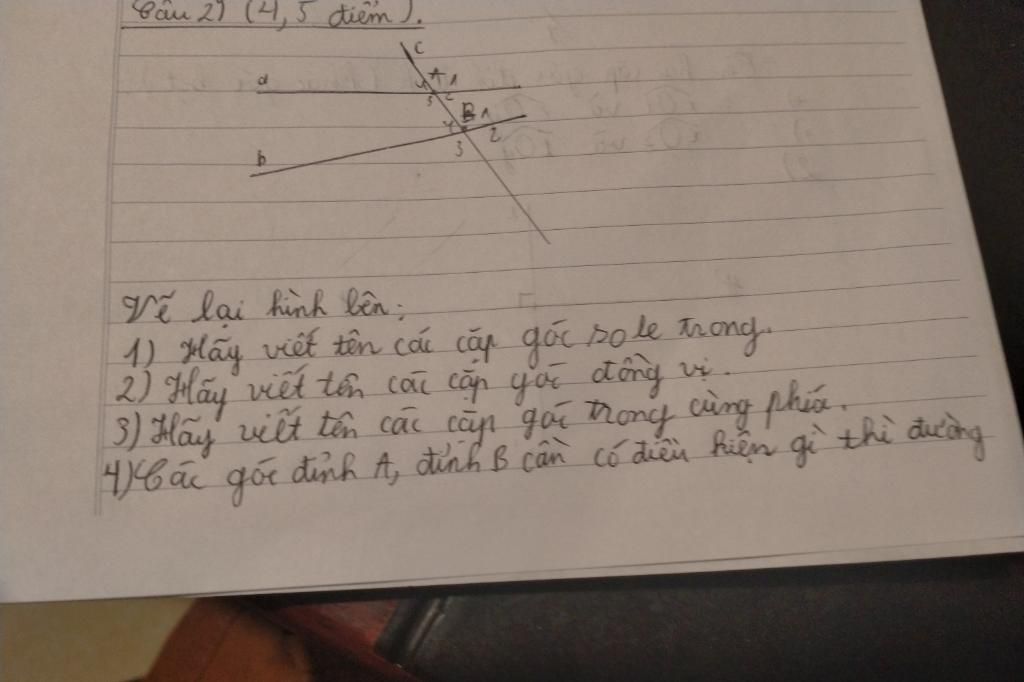 Câu 2) (4,5 điểm).
c
a
4 A 1
3 2
B 1
4 2
3
b
Vẽ lại hình bên:
1) Hãy viết tên các cặp góc so le trong.
2) Hãy viết tên các cặp góc đồng vị.
3) Hãy viết tên các cặp góc trong cùng phía.
4) Các góc đỉnh A, đỉnh B cần có điều kiện gì thì đường